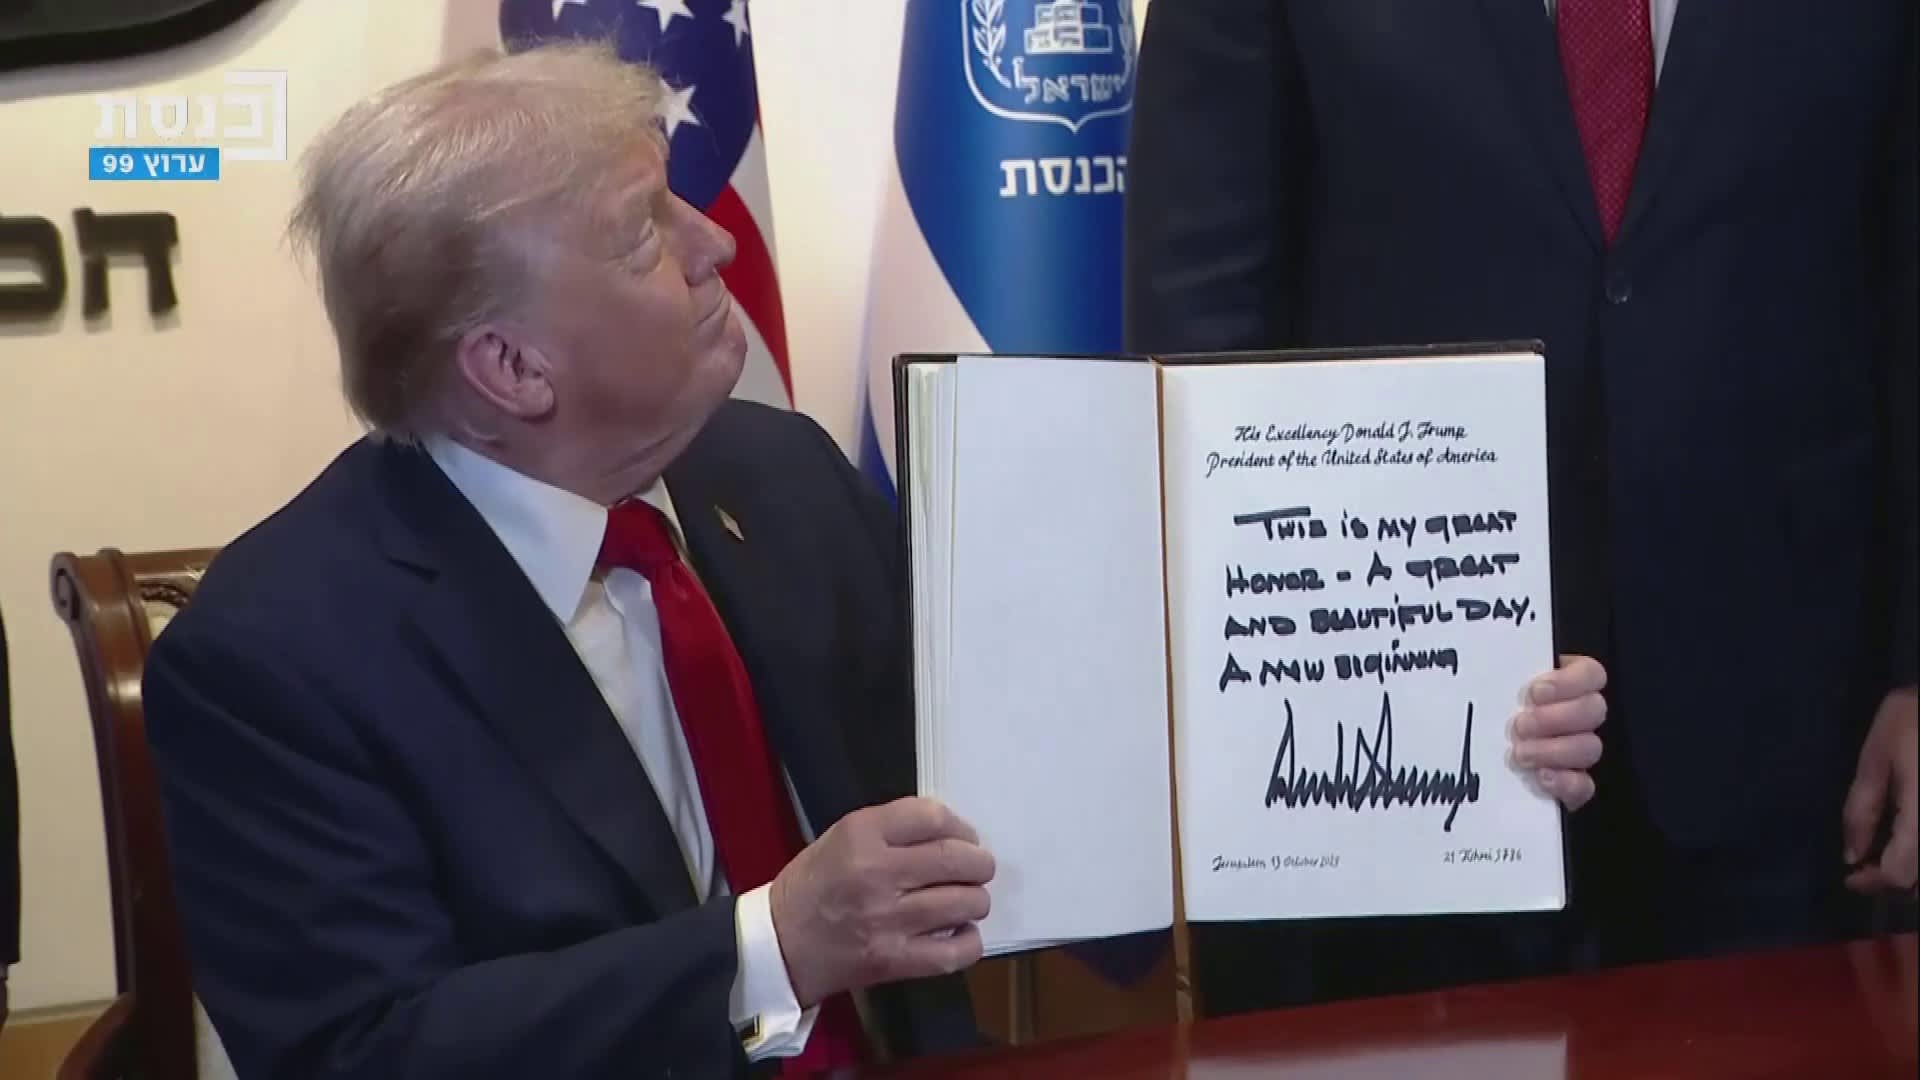 כנסת
ערוץ 99
ישראל
הכנסת
His Excellency Donald J. Trump
President of the United States of America
THIS IS MY GREAT
HONOR - A GREAT
AND BEAUTIFUL DAY.
A NEW BEGINNING
Jerusalem, 13 October 2025
21 Tishrei 5786